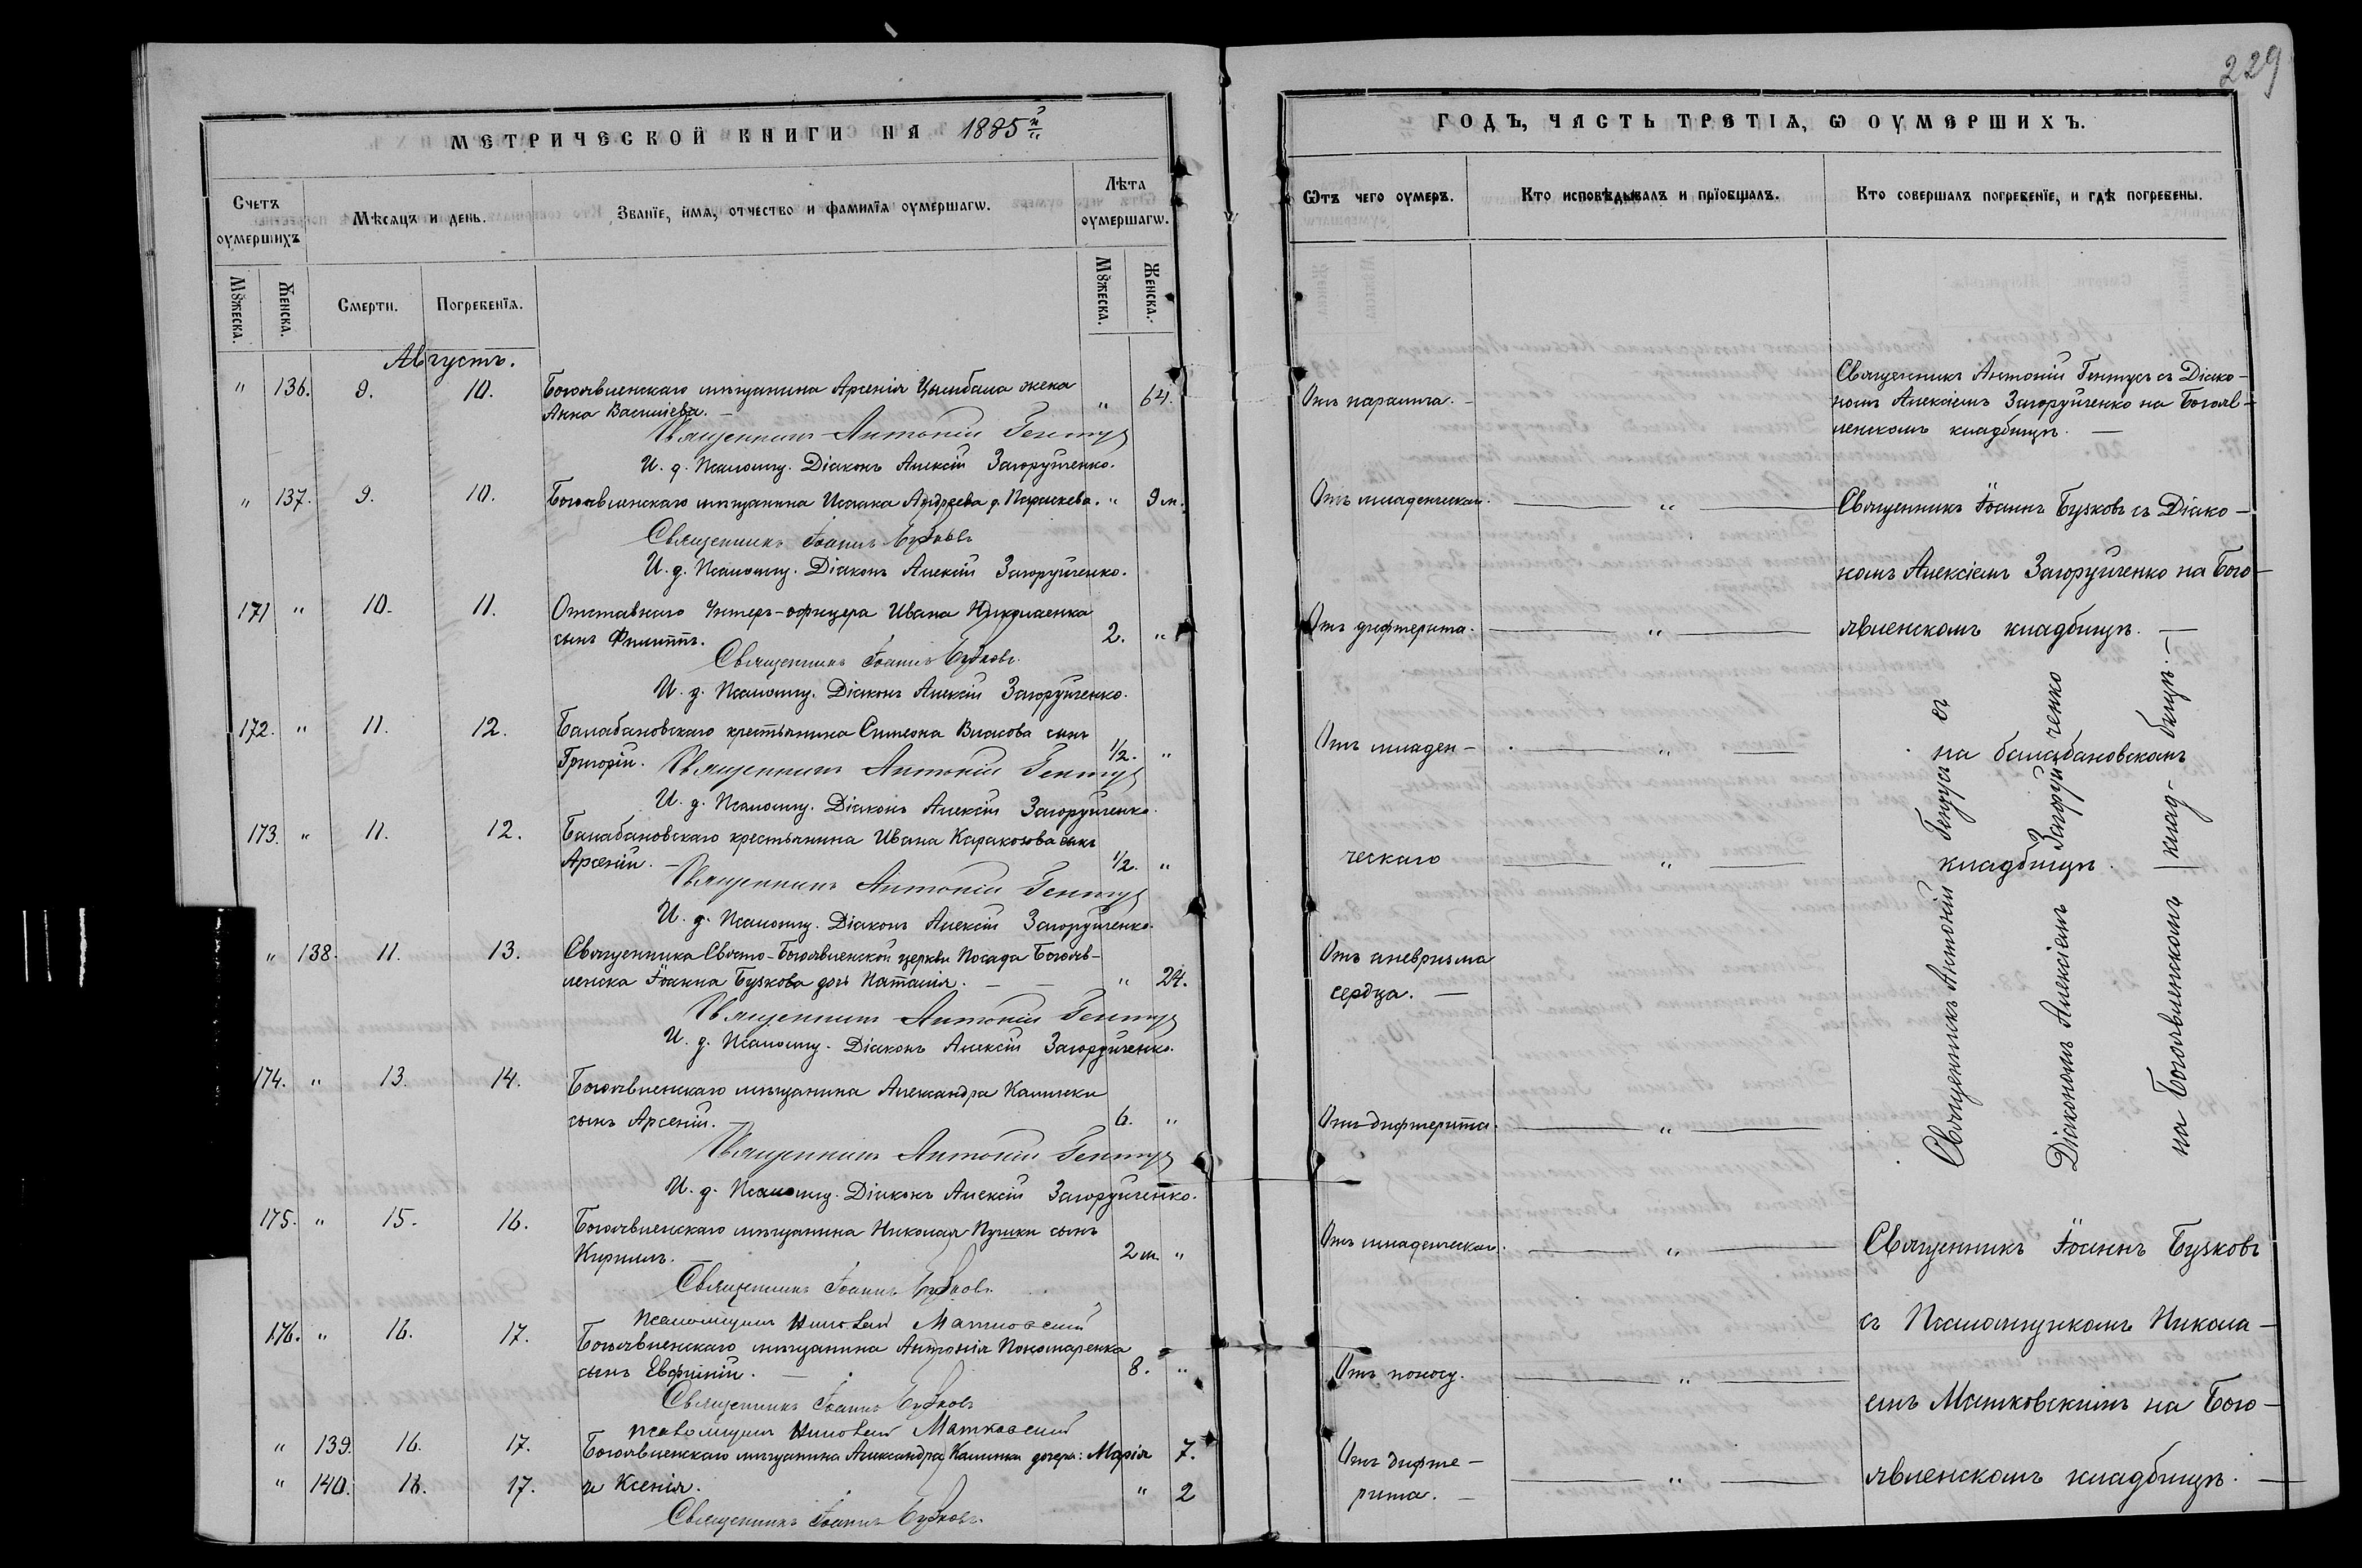 229
МЕТРИЧЕСКОЙ КНИГИ НА 1885й
ГОДЪ, ЧАСТЬ ТРЕТІѦ, Ѡ ОУМЕРШИХЪ.
Счетъ оумершихъ
Мѣсяцъ и день.
Званїе, имѧ, отчество и фамилїѧ оумершагѡ.
Лѣта оумершагѡ.
Ѿтъ чего оумеръ.
Кто исповѣдывалъ и прїобщалъ.
Кто совершалъ погребенїе, и гдѣ погребены.
Мꙋжеска.
Женска.
Смерти.
Погребенїѧ.
Мꙋжеска.
Женска.
Августъ.
" 136. 9. 10. Богоявленскаго мѣщанина Арсенія Цымбала жена
Анна Васильева. — " 64. Отъ паралича. —
Священникъ Антоній Гентуз
И. д. Псаломщ. Діаконъ Алексій Загоруйченко.
Священникъ Антоній Гентусъ съ Діако-
номъ Алексіемъ Загоруйченко на Богояв-
ленскомъ кладбищѣ. —
" 137. 9. 10. Богоявленскаго мѣщанина Исаака Андреева д. Параскева. " 9 м. Отъ младенческаго. — " —
Священникъ Іоаннъ Бузковъ
И. д. Псаломщ. Діаконъ Алексій Загоруйченко.
Священникъ Іоаннъ Бузковъ съ Діако-
номъ Алексіемъ Загоруйченко на Бого-
явленскомъ кладбищѣ. —
171 " 10. 11. Отставнаго Унтеръ-офицера Ивана Николаенка
сынъ Филиппъ. 2. " Отъ дифтерита. — " —
Священникъ Іоаннъ Бузковъ
И. д. Псаломщ. Діаконъ Алексій Загоруйченко.
172. " 11. 12. Балабановскаго крестьянина Симеона Власова сынъ
Григорій. 1/2. " Отъ младен- — " —
Священникъ Антоній Гентуз
И. д. Псаломщ. Діаконъ Алексій Загоруйченко.
на балабановскомъ
173. " 11. 12. Балабановскаго крестьянина Ивана Каракозова сынъ
Арсеній. — 1/2. " ческаго — " —
Священникъ Антоній Гентуз
И. д. Псаломщ. Діаконъ Алексій Загоруйченко.
кладбищѣ.
" 138. 11. 13. Священника Свято-Богоявленской церкви Посада Богояв-
ленска Іоанна Бузкова дочь Наталія. — " 24. Отъ аневризма
сердца. —
Священникъ Антоній Гентуз
И. д. Псаломщ. Діаконъ Алексій Загоруйченко.
Священникъ Антоній Гентусъ съ
Діакономъ Алексіемъ Загоруйченко
на Богоявленскомъ клад-бищѣ. —
174. " 13. 14. Богоявленскаго мѣщанина Александра Калинки
сынъ Арсеній. 6. " Отъ дифтерита. — " —
Священникъ Антоній Гентуз
И. д. Псаломщ. Діаконъ Алексій Загоруйченко.
175. " 15. 16. Богоявленскаго мѣщанина Николая Пушки сынъ
Кириллъ. 2 м. " Отъ младенческаго. — " —
Священникъ Іоаннъ Бузковъ
Псаломщикъ Николай Матковскій
Священникъ Іоаннъ Бузковъ
съ Псаломщикомъ Никола-
емъ Матковскимъ на Бого-
явленскомъ кладбищѣ. —
176. " 16. 17. Богоявленскаго мѣщанина Антонія Пономаренка
сынъ Евфимій. — 8. " Отъ поносу. — " —
Священникъ Іоаннъ Бузковъ
псаломщикъ Николай Матковскій
" 139. 16. 17. Богоявленскаго мѣщанина Александра Калинки дочери: Марія 7. Отъ дифте-
" 140. 16. 17. и Ксенія. " 2 рита. — " —
Священникъ Іоаннъ Бузковъ